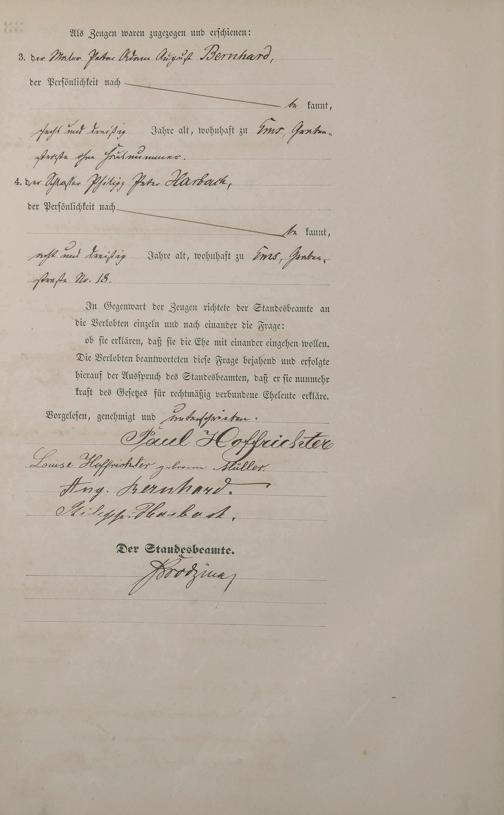 Als Zeugen waren zugezogen und erschienen:
3. der Maler Peter Adam August Bernhard,
der Persönlichkeit nach
be kannt,
sechs und dreißig Jahre alt, wohnhaft zu Ems, Graben-
straße ohne Hausnummer.
4. der Schlosser Philipp Peter Harbach,
der Persönlichkeit nach
be kannt,
acht und dreißig Jahre alt, wohnhaft zu Ems, Graben-
straße No. 18.
In Gegenwart der Zeugen richtete der Standesbeamte an
die Verlobten einzeln und nach einander die Frage:
ob sie erklären, daß sie die Ehe mit einander eingehen wollen.
Die Verlobten beantworteten diese Frage bejahend und erfolgte
hierauf der Ausspruch des Standesbeamten, daß er sie nunmehr
kraft des Gesetzes für rechtmäßig verbundene Eheleute erkläre.
Vorgelesen, genehmigt und unterschrieben.
Paul Hoffrichter
Louise Hoffrichter geborene Müller
Aug. Bernhard.
Philipp Harbach.
Der Standesbeamte.